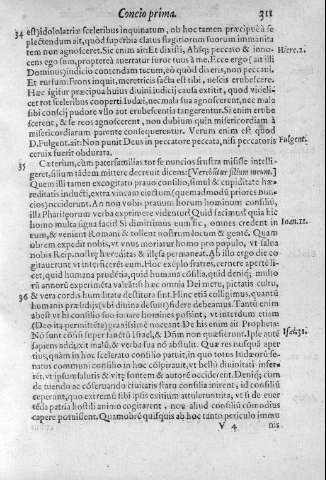 Concio prima. 311
34 est) idololatriæ sceleribus inquinatum, ob hoc tamen præcipuè se
plectendum ait, quòd superbia elatus flagitiorum suorum immanita
tem non agnosceret. Sic enim ait: Et dixisti, Absq; peccato & inno- Hiere.2.
cens ego sum, propterea auertatur furor tuus à me. Ecce ergo (ait illi
Dominus) iudicio contendam tecum, eò quòd dixeris, non peccaui.
Et rursum: Frons inquit, meretricis facta est tibi, nescis erubescere.
Hæc igitur præcipua huius diuini iudicij causa extitit, quòd videli-
cet tot sceleribus cooperti Iudæi, nec mala sua agnoscerent, nec malo
sibi conscij pudore vllo aut erubescentia tangerentur. Si enim erube
scerent, & se reos agnoscerent, non dubium quin misericordiam à
misericordiarum parente consequerentur. Verum enim est quod
D. Fulgent. ait: Non punit Deus in peccatore peccata, nisi peccatoris Fulgent.
ceruix fuerit obdurata.
35 Cæterùm, cùm paterfamilias tot se nuncios frustra misisse intelli-
geret, filium tãdem mittere decreuit dicens: [Verebũtur filium meum.]
Quem illi tamen excogitato prauo consilio, simul & cupiditate hæ-
reditatis inducti, extra vineam eiectum (quemadmodũ priores nun-
cios) occiderunt. An non vobis prauum horum hominum consiliũ,
illa Pharisæorum verba exprimere videntur? Quid facimus? quia hic
homo multa signa facit? Si dimittimus eum sic, omnes credent in Ioan.11.
eum, & venient Romani & tollent nostrum locum & gentẽ. Quam
obrem expedit nobis, vt vnus moriatur homo pro populo, vt salua
nobis Reip. nostræ hæreditas & illæsa permaneat. Ab illo ergo die co
gitauerunt vt interficerẽt eum. Hoc exẽplo fratres, cernere apertè li-
cet, quid humana prudẽtia, quid humana cõsilia, quid deniq; multo
rũ annorũ experimẽta valeãt, si hæc omnia Dei metu, pictatis cultu,
36 & vera cordis humilitate destituta sint. Hinc etiã colligimus, quantũ
humanis præsidijs (vbi diuina desunt) fidere debeamus. Tantũ enim
abest vt hi consilio suo iuuare homines possint, vt interdum etiam
(Deo ita permittẽte) grauissimè noceant. De his enim ait Propheta:
Nõ sunt cõfisi super sanctũ Israel, & Dñm non quæsierunt. Ipse autẽ Isai.31.
sapiens addu xit malũ, & verba sua nõ abstulit. Quæ res nusquã aper
tius, quàm in hoc scelerato consilio patuit, in quo totus Iudæorũ se-
natus communi consilio in hoc cõspirauit, vt belli diuinitati infer-
rẽt, vt ipsum salutis & vitę fontem & autorẽ occiderent. Deniq; cum
de tuenda ac cõseruando ciuitatis statu consilia inirent, id consilij
ceperunt, quo extremũ sibi ipsis exitium attulerunt ita, vt si de euer
tẽda patria hostili animo cogitarent, non aliud consiliũ cõmodius
capere potuissent. Quamobrẽ quisquis ab hoc tanto periculo immu
V 4 nis